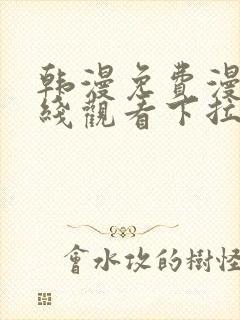 韩漫免費漫
綫觀看下拉
會水攻的樹怪